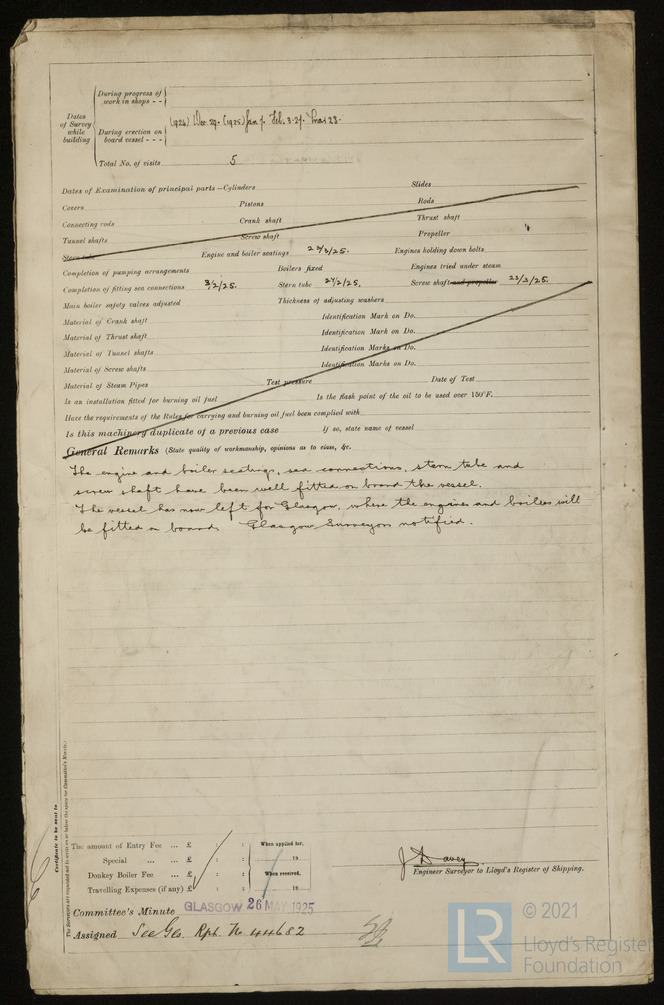 During progress of
work in shops - -
Dates
of Survey
while
building
(1924) Dec. 29. (1925) Jan 7. Feb. 3. 27. Mar 23.
During erection on
board vessel - - -
Total No. of visits 5
Dates of Examination of principal parts—Cylinders Slides
Covers Pistons Rods
Connecting rods Crank shaft Thrust shaft
Tunnel shafts Screw shaft Propeller
Stern tube Engine and boiler seatings Engines holding down bolts
Completion of pumping arrangements Boilers fixed Engines tried under steam
Completion of fitting sea connections 3/2/25. Stern tube 27/2/25. Screw shaft and propeller 23/3/25.
Main boiler safety valves adjusted Thickness of adjusting washers
Material of Crank shaft Identification Mark on Do.
Material of Thrust shaft Identification Mark on Do.
Material of Tunnel shafts Identification Marks on Do.
Material of Screw shafts Identification Marks on Do.
Material of Steam Pipes Test pressure Date of Test
Is an installation fitted for burning oil fuel Is the flash point of the oil to be used over 150°F.
Have the requirements of the Rules for carrying and burning oil fuel been complied with
Is this machinery duplicate of a previous case If so, state name of vessel
General Remarks (State quality of workmanship, opinions as to class, &c.
The engine and boiler seatings, sea connections, stern tube and
screw shaft have been well fitted on board the vessel.
The vessel has now left for Glasgow, where the engines and boilers will
be fitted on board. Glasgow Surveyors notified.
Certificate to be sent to
The Surveyors are requested not to write on or below the space for Committee's Minute.
The amount of Entry Fee ... £ : : When applied for,
Special ... ... £ : : 19
Donkey Boiler Fee ... £ : : When received,
Travelling Expenses (if any) £ : : 19
J Davey
Engineer Surveyor to Lloyd's Register of Shipping.
Committee's Minute GLASGOW 26 MAY 1925
Assigned See Gls. Rpt. No 44682
LR
© 2021
Lloyd's Register
Foundation